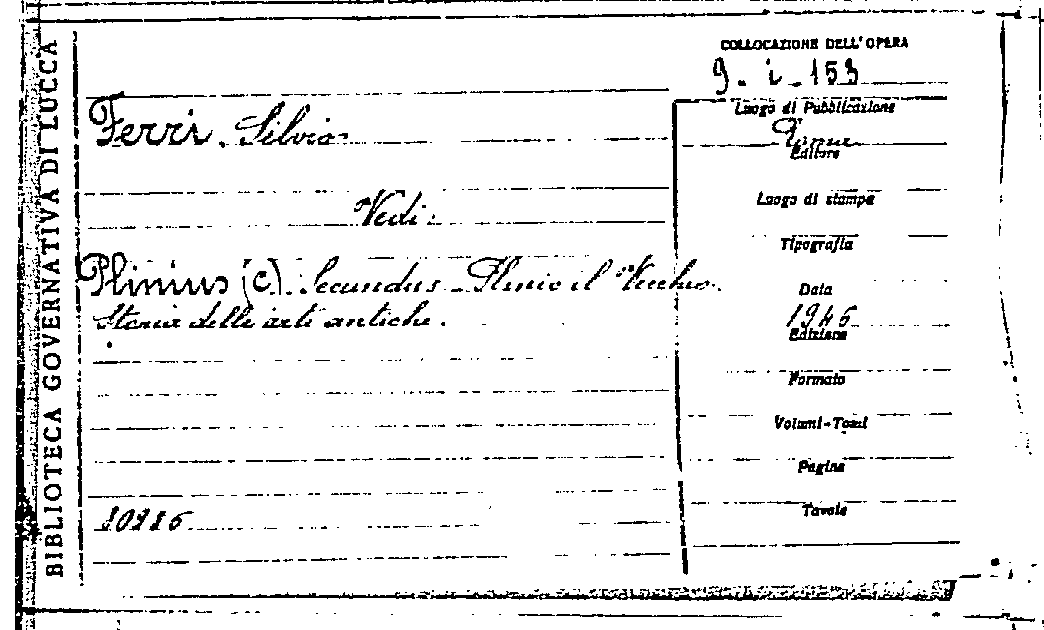 BIBLIOTECA GOVERNATIVA DI LUCCA
COLLOCAZIONE DELL'OPERA
9. i. 153
Ferri. Silvio
Vedi:
Plinius (C). Secundus - Plinio il Vecchio.
Storia delle arti antiche.
Luogo di Pubblicazione
Roma
Editore
Luogo di stampa
Tipografia
Data
1946
Edizione
Formato
Volumi-Tomi
Pagine
Tavole